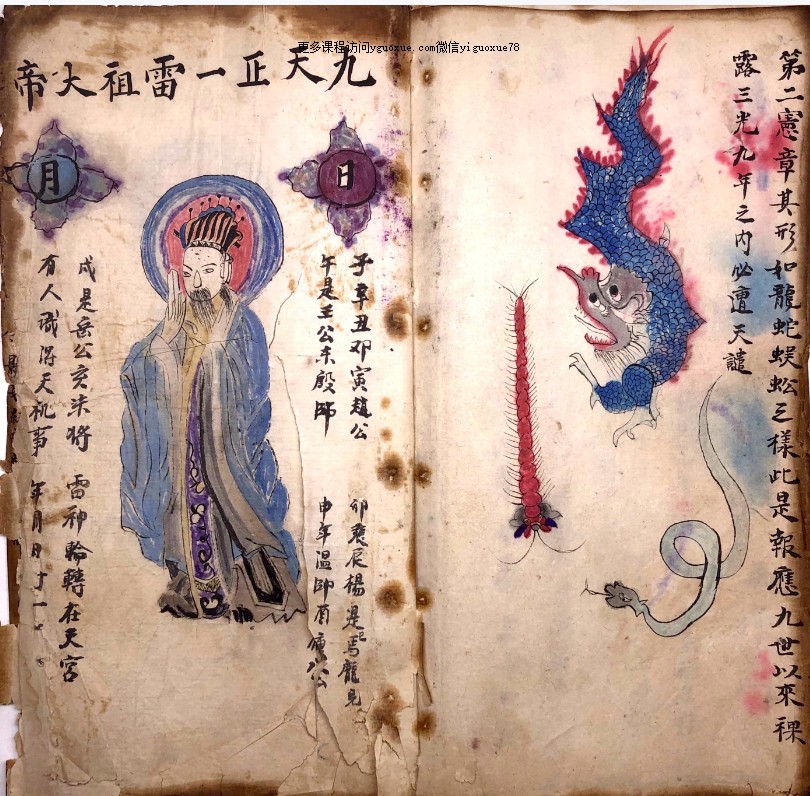 更多课程访问yguoxue.com微信yiguoxue78
第二憲章其形如龍蛇蜈蚣三樣此是報應九世以來裸
露三光九年之内必遭天譴
九天正一雷祖大帝
日
月
子辛丑邓寅趙公
卯辰楊是馬龍見
午是王公未殷帥
申年温帥酉公
戌是岳公亥朱将
雷神輪轉在天宮
有人識得天机事
年月日寸一